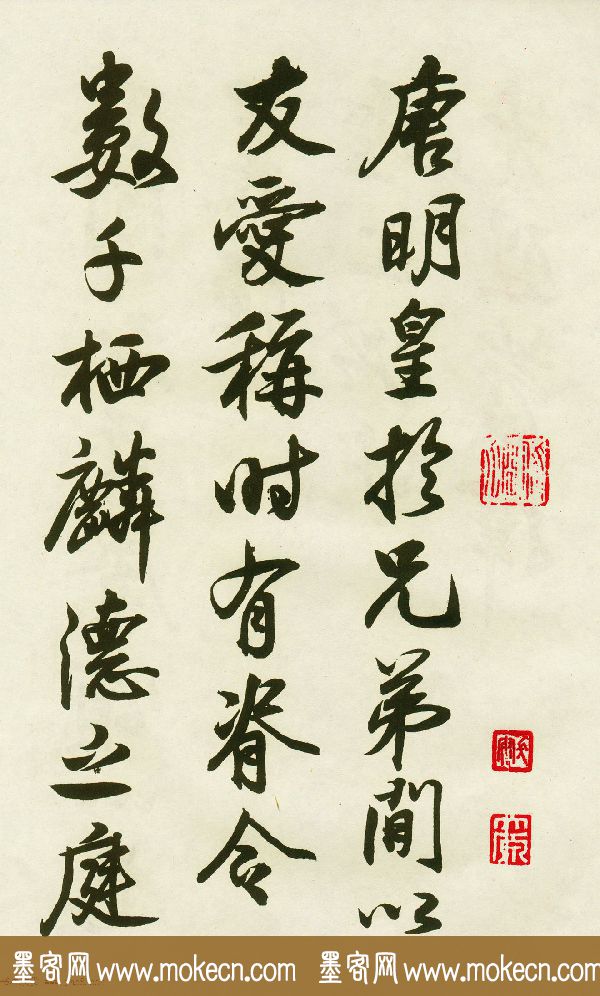 唐明皇於兄弟間以
友愛稱時有脊令
數千栖麟德之庭
墨客网 www.mokecn.com 墨客网 www.mokecn.com